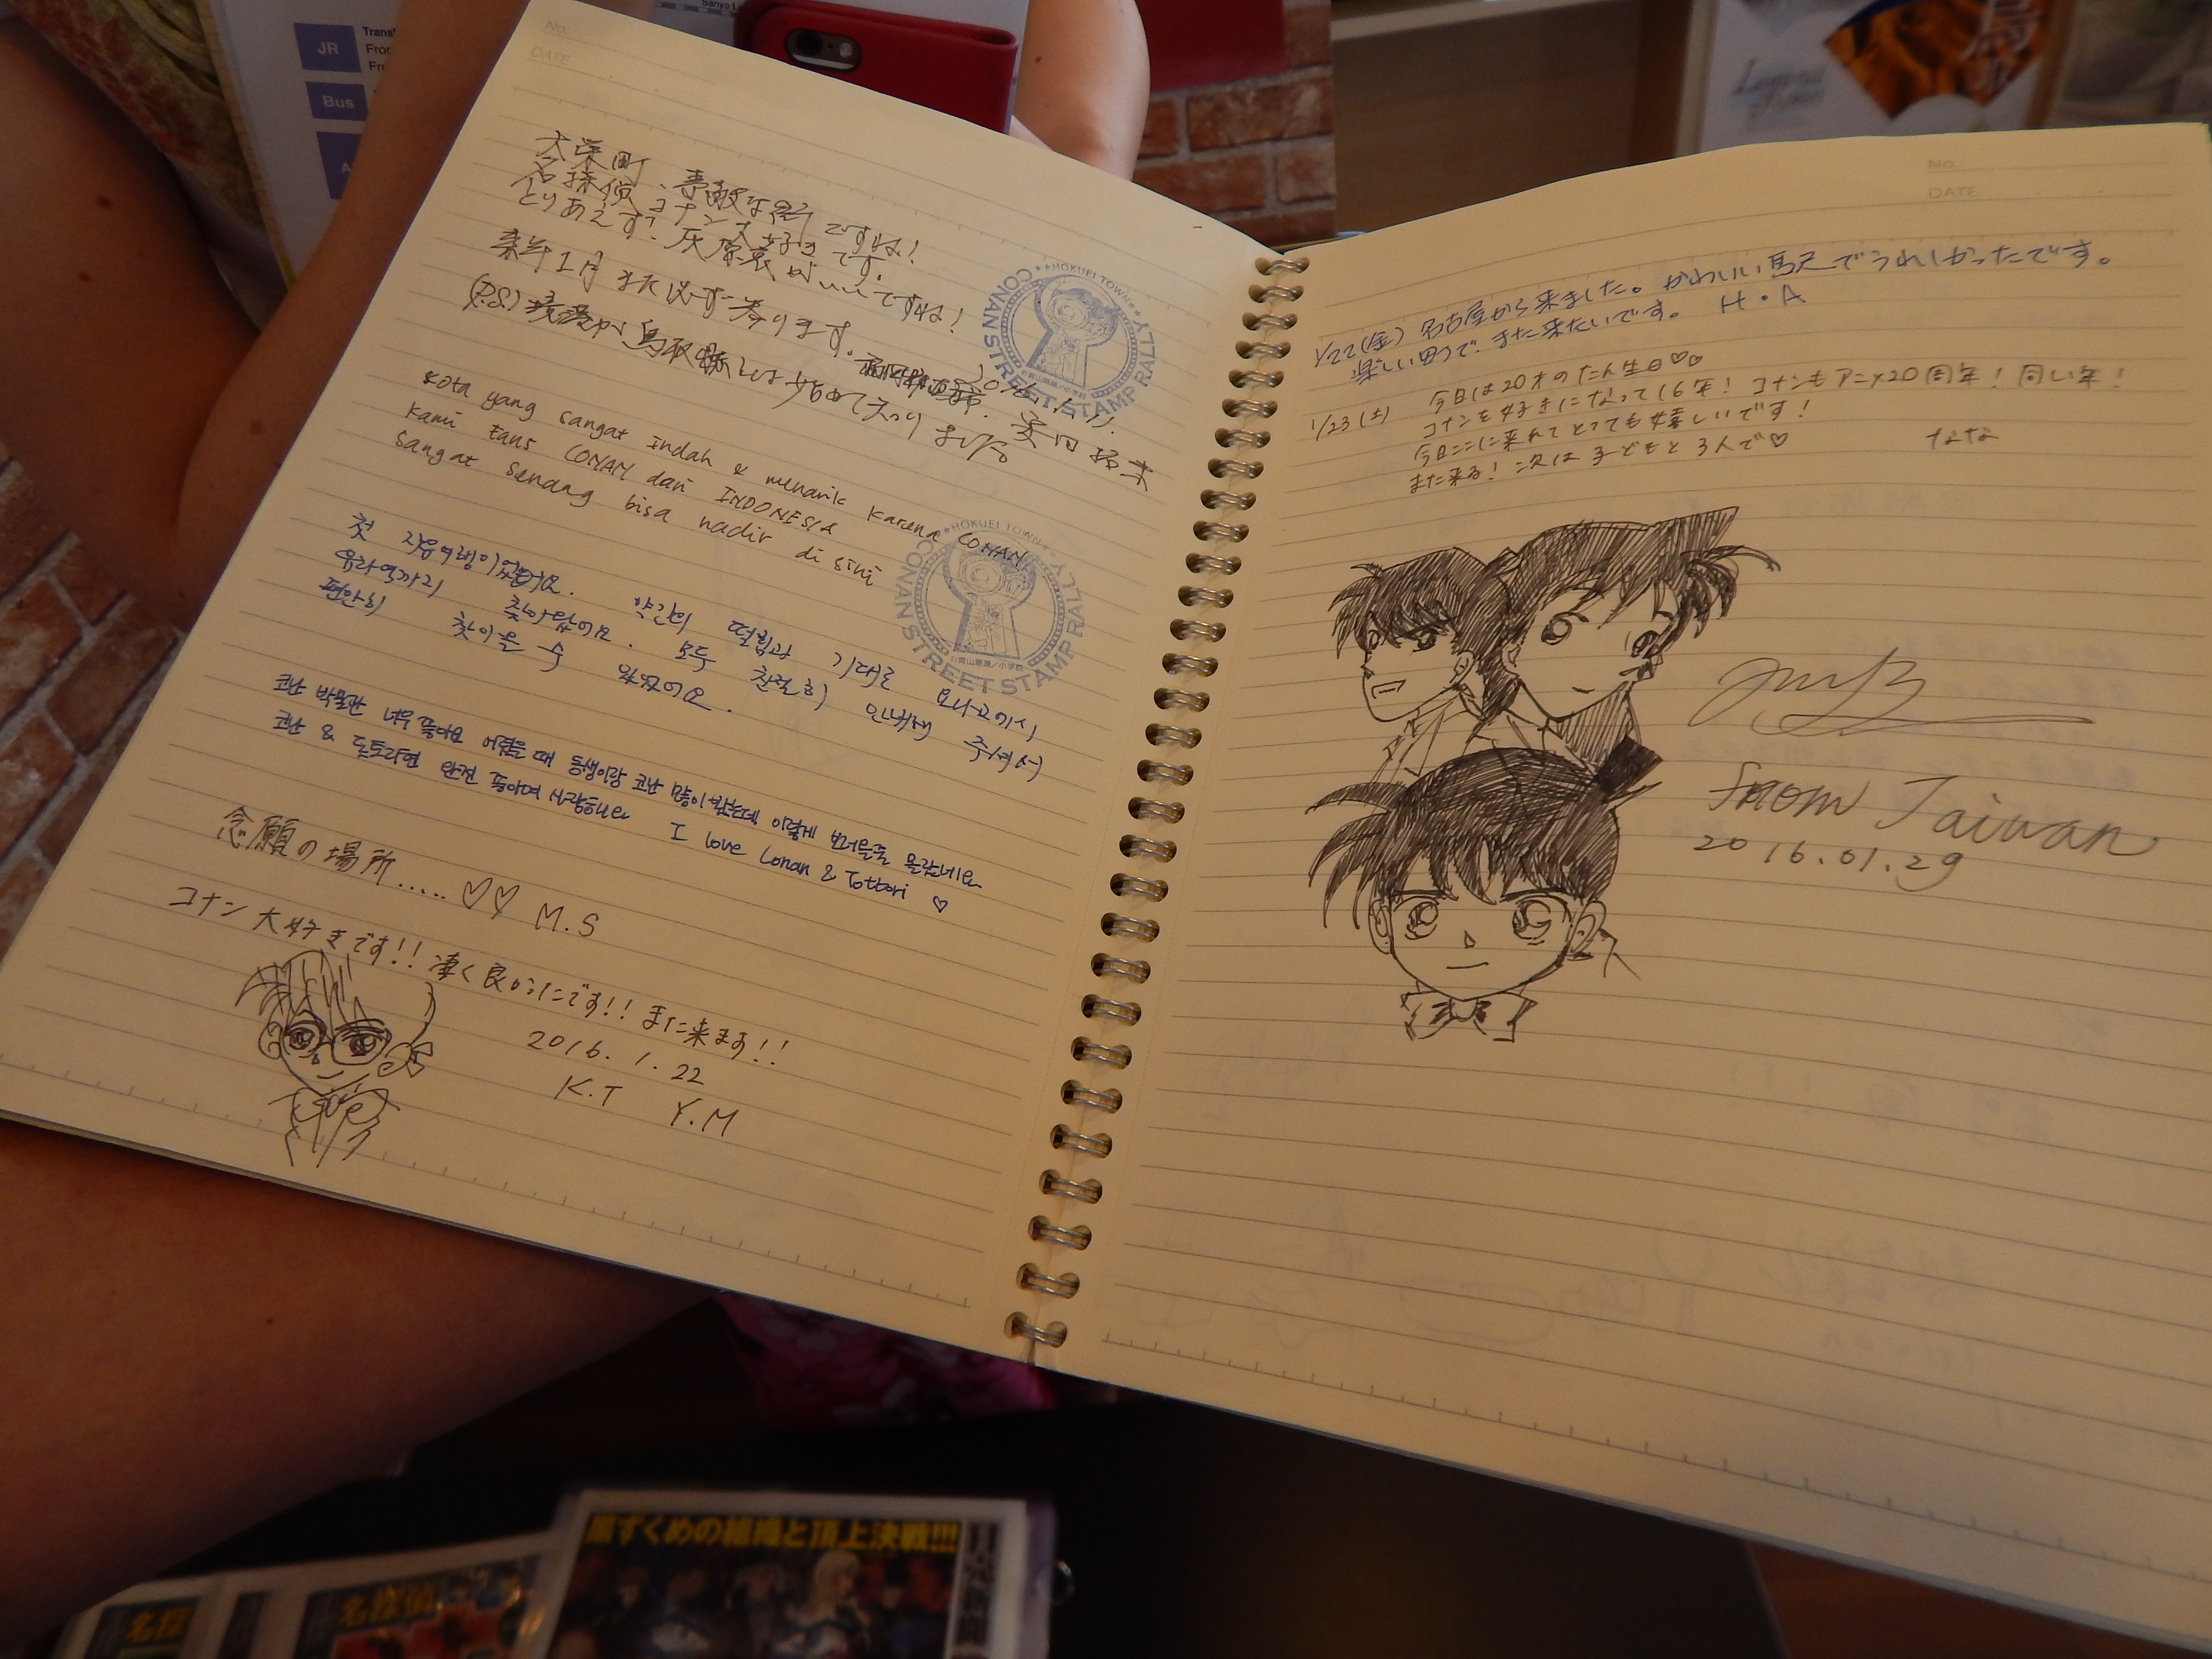 JR
Bus
No.
DATE
大栄町、素敵な町ですね!
名探偵コナン大好きです。
とりあえず、灰原哀がいいですね!
来年1月また必ず参ります。
(P.S.)
鳥取県
HOKUEI TOWN
CONAN STREET STAMP RALLY
Kota yang sangat Indah & menarik karena CONAN
Kami Fans CONAN dari INDONESIA
Sangat senang bisa hadir di sini
HOKUEI TOWN
CONAN STREET STAMP RALLY
첫 자유여행이었는데요. 약간의 떨림과 기대로
유라역까지 찾아왔어요. 모두 친절히 안내해 주셔서
편안히 찾아올 수 있었어요.
코난 박물관 너무 좋아요 어렸을 때 동생이랑 코난 많이 봤는데 이렇게 보러올줄 몰랐네요
코난 & 돗토리현 완전 좋아여 사랑해요 I love Conan & Tottori ♡
念願の場所..... ♡♡ M.S
コナン大好きです!! 凄く良かったです!! また来ます!!
2016.1.22
K.T Y.M
No.
DATE
1/22(金) 名古屋から来ました。かわいい駅でうれしかったです。
楽しい町で、また来たいです。 H・A
1/23(土) 今日は20才のたん生日♡♡
コナンを好きになって16年! コナンもアニメ20周年! 同い年!
今日ここに来れてとっても嬉しいです!
また来る! 次は子どもと3人で♡ なな
from Taiwan
2016.01.29
黒ずくめの組織と頂上決戦!!!
名探偵
名探